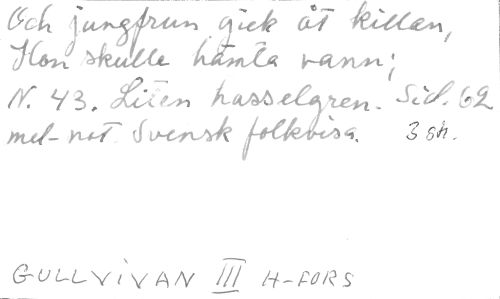 Och jungfrun gick åt killan,
Hon skulle hämta vann;
N. 43. Liten hasselgren. Sid. 62
mel-not. Svensk folkvisa. 3 str.
GULLVIVAN III H-FORS